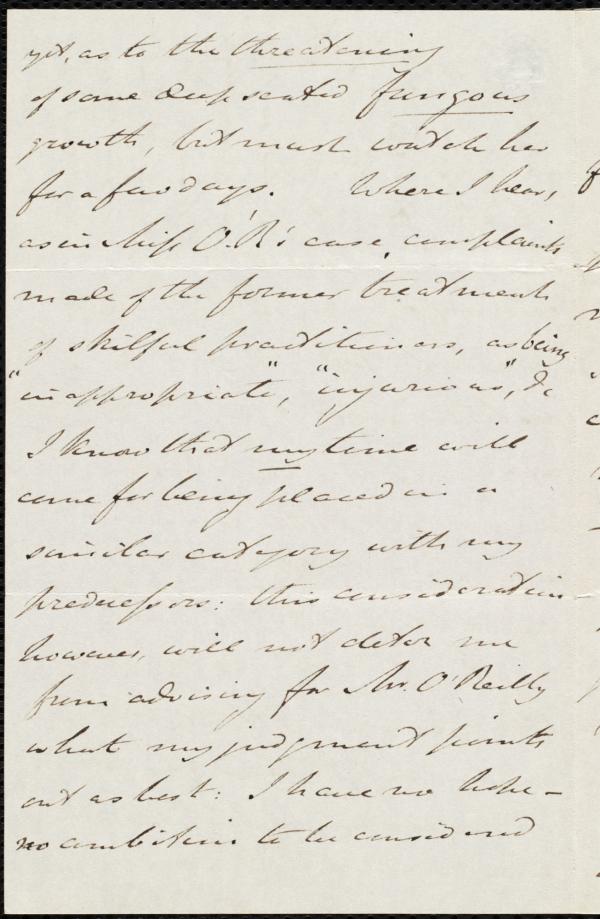 yet, as to the threatening
of some deep seated fungous
growth, but must watch her
for a few days. Where I hear,
as in Miss O'R's case, complaints
made of the former treatment
of skilful practitioners, as being
"inappropriate", "injurious", &c
I know that my time will
come for being placed in a
similar category with my
predecessors: this consideration
however, will not deter me
from advising for Mr. O'Reilly
what my judgment points
out as best: I have no hope -
no ambition to be considered